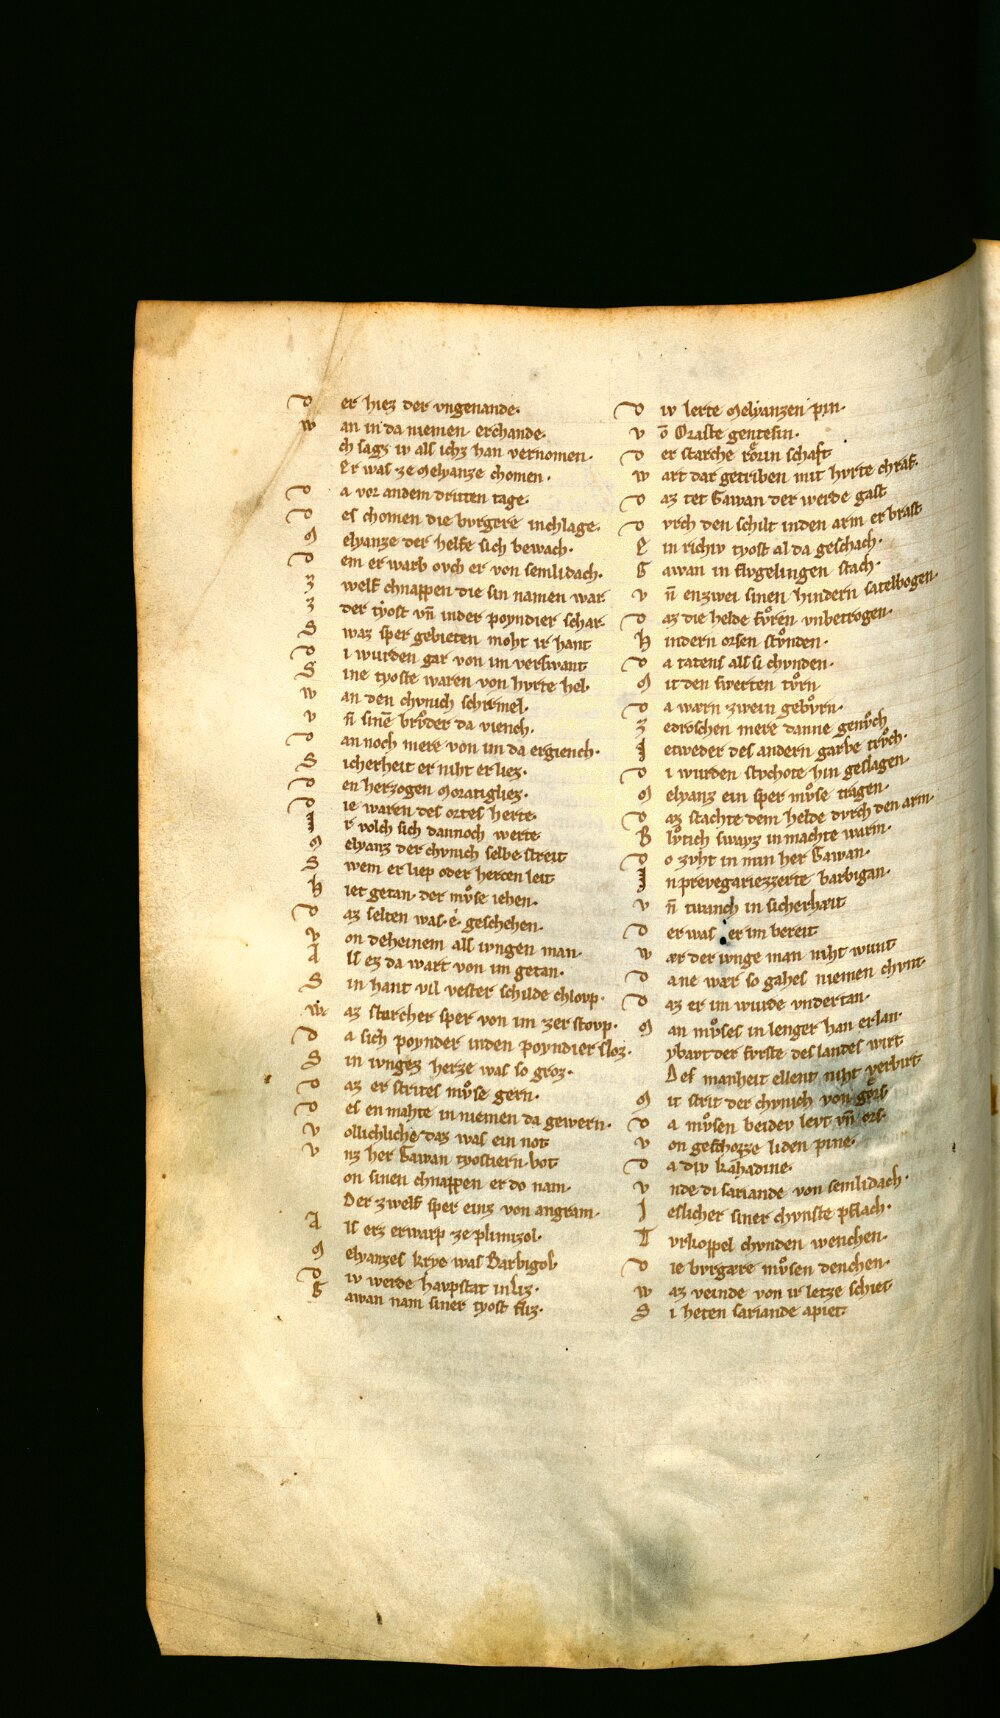 D er hiez der vngenande·
W an in da niemen erchande·
ch sagz iv als ichz han vernomen·
Er was ze Melyanze chomen·
D a vor andem dritten tage·
D es chomen die bvrgere inchlage·
M elyanze der helfe sich bewach·
D em er warb ovch er von semlidach·
Z welf chnappen die sin namen war
Z der tyost vn̄ inder poyndier schar·
S waz sper gebieten moht ir hant
D i wurden gar von im verswant
S ine tyoste waren von hvrte hel·
W an den chvnich schirmel·
V n̄ sinē brvͦder da viench·
D annoch mere von im da ergiench·
S icherheit er niht erliez·
D en herzogen Moratigliez·
D ie waren des ortes herte·
I r volch sich dannoch werte·
M elyanz der chvnich selbe streit
S wem er liep oder hercen leit
H iet getan· der mvͦse iehen·
D az selten was e· geschehen·
V on deheinem als ivngen man·
A ls ez da wart von im getan·
S in hant vil vester schilde chlovp·
W az starcher sper von im zerstovp·
D a sich poynder inden poyndier sloz·
S in ivngez herze was so groz·
D az er strites mvͦse gern·
D es en mahte in niemen da gewern·
V ollichliche daz was ein not
V nz her Gawan tyostiern bot
on sinen chnappen er do nam·
Der zwelf sper einz von angram·
A ls erz erwarp ze plimizol·
M elyanzes krye was Barbigol·
D iv werde havpstat in liz·
G awan nam siner tyost fliz·
D iv lerte Melyanzen pin·
V ō Oraste gentesin·
D er starche rœrin schaft
W art dar getriben mit hvrte chraft·
D az tet Gawan der werde gast
D vrch den schilt inden arm er brast
E in richiv tyost al da geschach·
G awan in flvgelingen stach·
V n̄ enzwei sinen hindern satelbogen·
D az die helde fvͦren vnbetrogen·
H indern orsen stvͦnden·
D a tatens als si chvnden·
M it den swerten tvͦrn
D a wærn zwein gebvͦrn·
Z edroschen mere danne genvͦch
I etweder des andern garbe trvͦch·
D i wurden stvchote hin geslagen·
M elyanz ein sper mvͦse tragen·
D az stachte dem helde dvrch den arm·
B lvͦtich swayz in machte warm·
D o zvht in min her Gawan·
I n prevegariezzerte barbigan·
V n̄ twanch in sicherhæit
D er was er im bereit
W ær der ivnge man niht wunt
D ane wær so gahes niemen chvnt·
D az er im wurde vndertan·
M an mvͦses in lenger han erlan·
ybavt der fvrste des landes wirt
Des manheit ellent niht verbirt
M it strit der chvnich von gors
D a mvͦsen beidev levt vn̄ ors·
V on geschozze liden pine·
D a div kahadine·
V nde di sariande von semlidach·
I eslicher siner chvnste pflach·
T vrkoppel chvnden wenchen·
D ie bvrgære mvͦsen denchen·
W az veinde von ir letze schiet
S i heten sariande apiet·